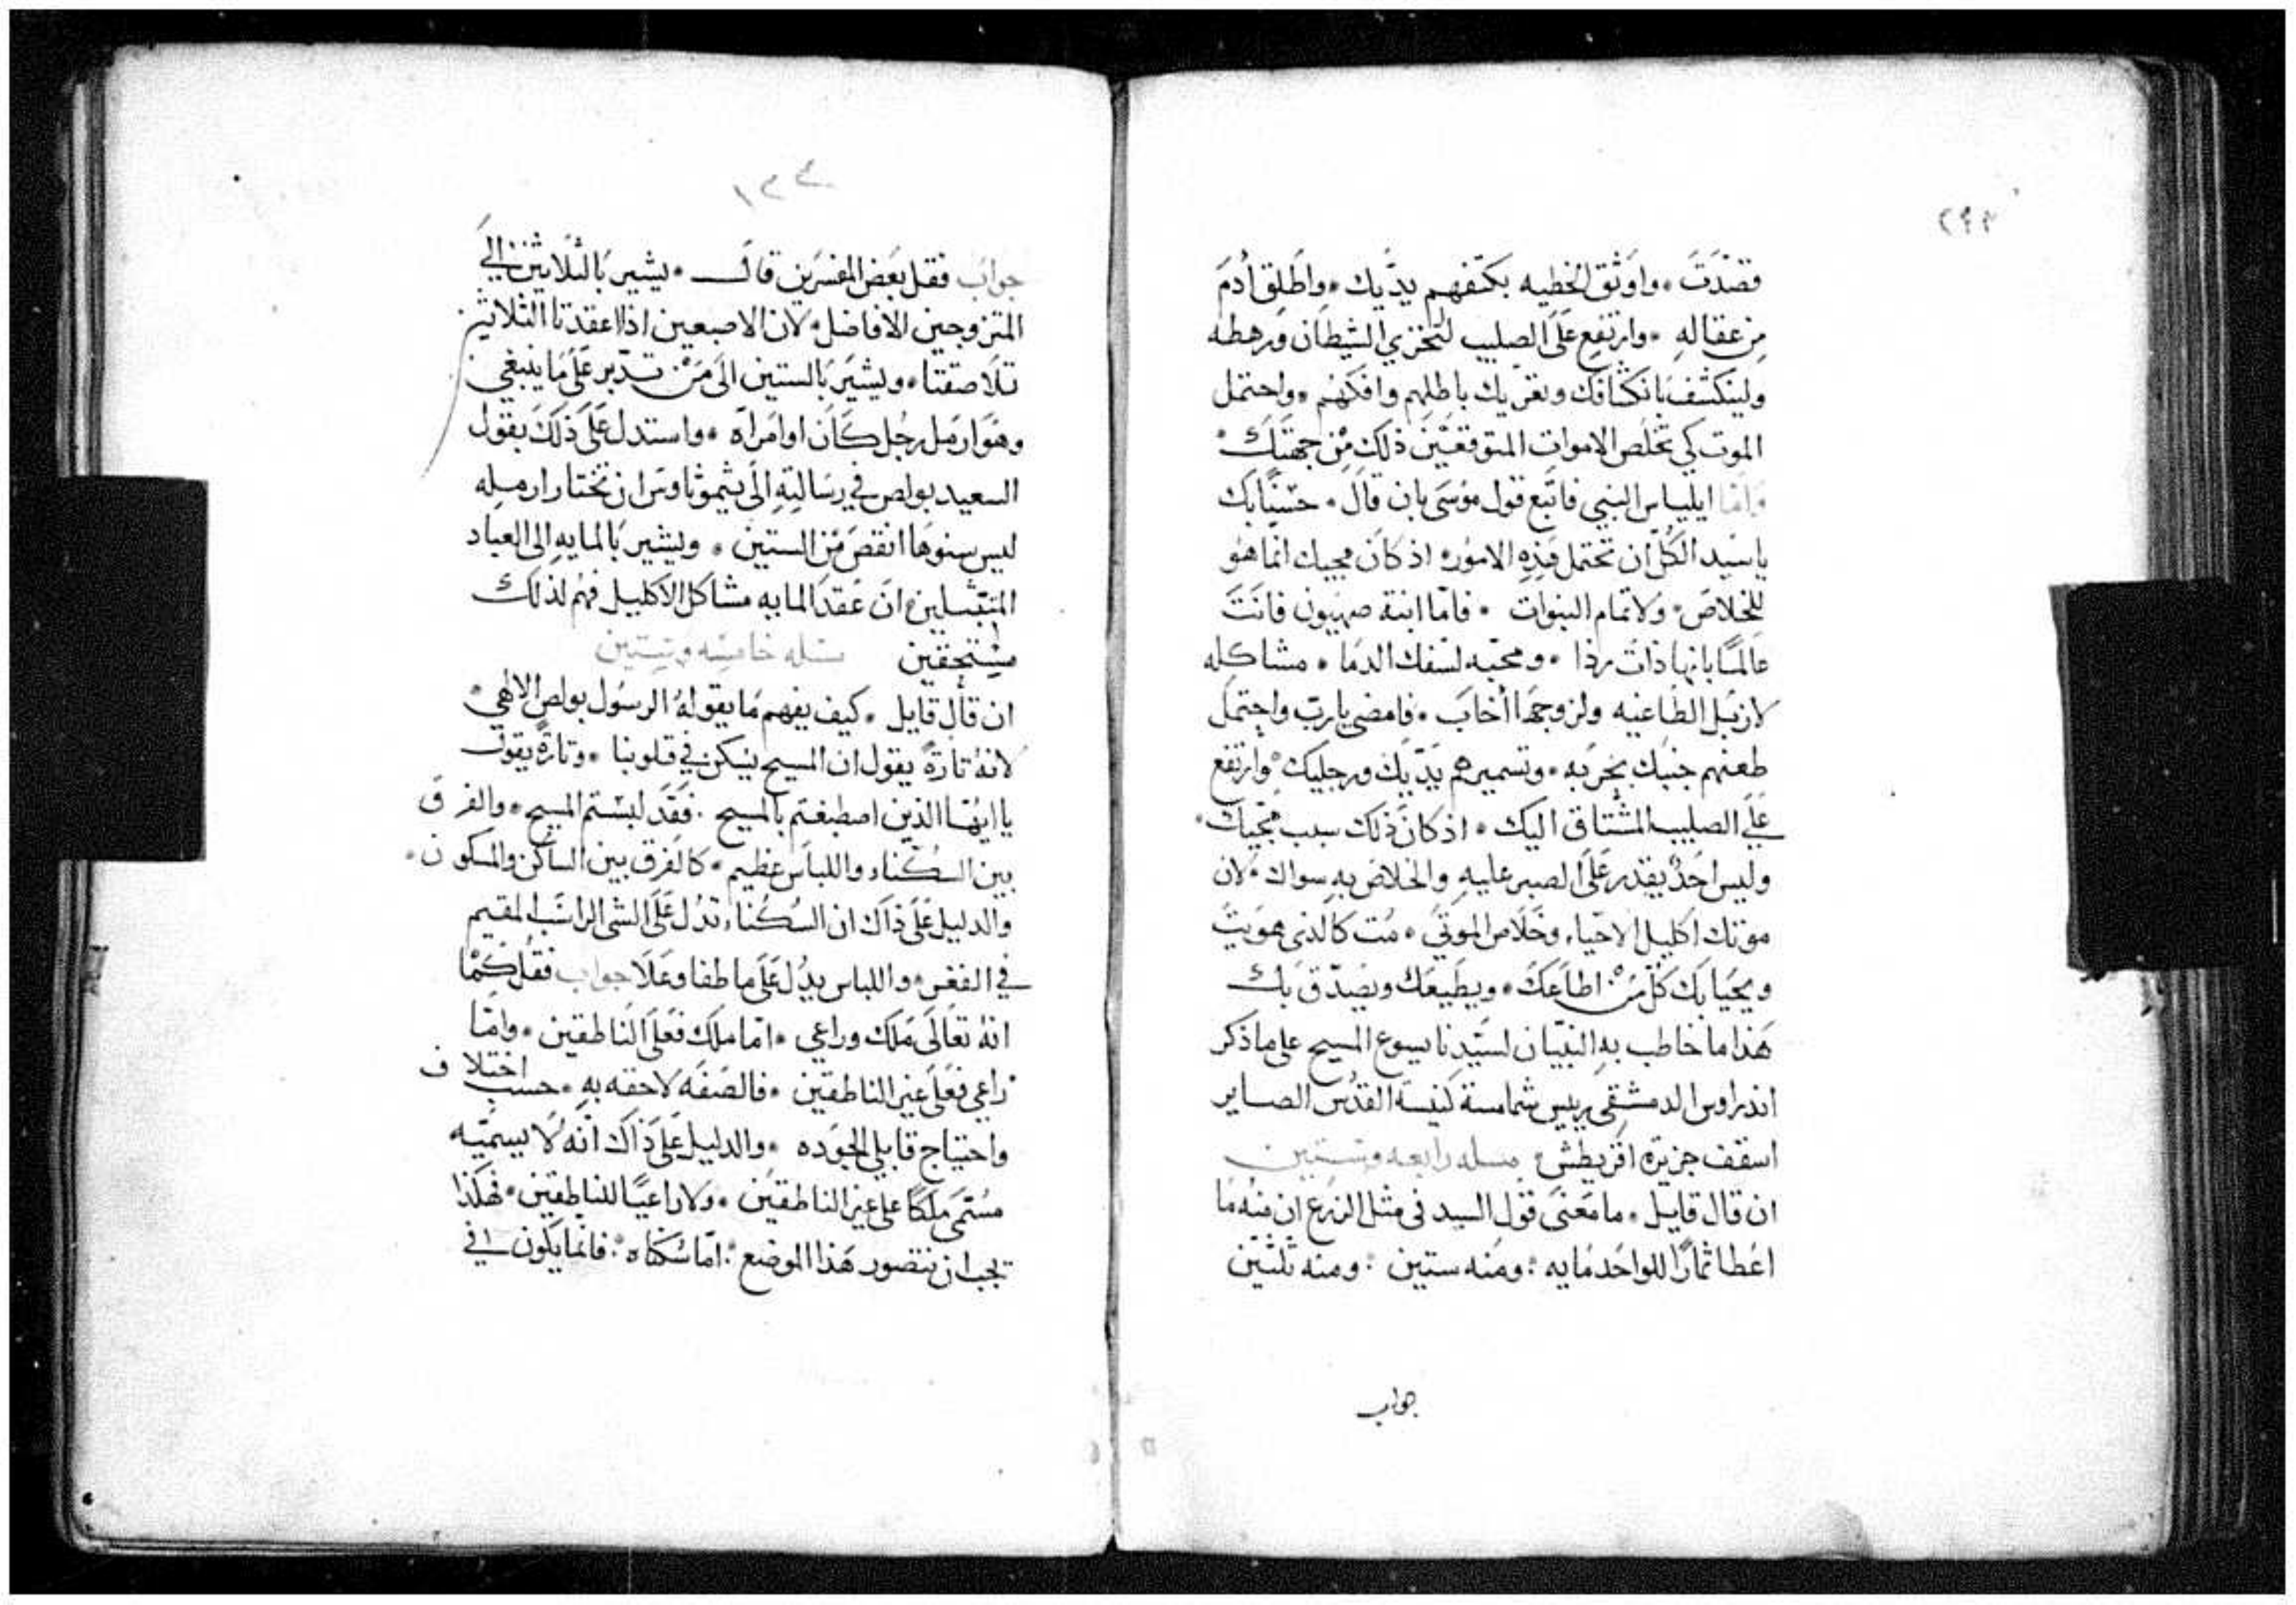 ٢٩٣
قصدت ۰ واوثق الخطيه بكتفهم يديك ۰ واطلق ادم
من عقاله ۰ وارتفع على الصليب لتخزي الشيطان ورهطه
ولينكشف بانكشافك وتعريك باطلهم وافكهم ۰ واحتمل
الموت كي تخلص الاموات المتوقعين ذلك من جهتك ۰
واما ايلياس النبي فاتبع قول موسى بان قال ۰ حسنا بك
يا سيد الكل ان تحتمل هذه الامور ۰ اذ كان مجيك انما هو
للخلاص ۰ ولاتمام النبوات ۰ فاما ابنة صهيون فانت
عالما بانها ذات رذا ۰ ومحبه لسفك الدما ۰ مشاكله
لازبل الطاغيه ولزوجها اخاب ۰ فامضي يا رب واحتمل
طعنهم جنبك بحربه ۰ وتسميرهم يديك ورجليك ۰ وارتفع
على الصليب المشتاق اليك ۰ اذ كان ذلك سبب مجيك ۰
وليس احد يقدر على الصبر عليه والخلاص به سواك ۰ لان
موتك اكليل الاحياء وخلاص الموتي ۰ مت كالذي هويت
ويحيا بك كل من اطاعك ۰ ويطيعك ويصدق بك
هذا ما خاطب به النبيان لسيدنا يسوع المسيح على ما ذكر
اندراوس الدمشقي رييس شمامسة كنيسة القدس الصاير
اسقف جزيرة اقريطش ۰ مسله رابعه وستين
ان قال قايل ۰ ما معنى قول السيد في مثل الزرع ان منه ما
اعطا ثمارا للواحد مايه : ومنه ستين : ومنه ثلثين
جواب
١٣٤
جواب فقل بعض المفسرين قال ۰ يشير بالثلاثين الي
المتزوجين الافاضل ۰ لان الاصبعين اذا اعقدتا الثلاثين
تلاصقتا ۰ ويشير بالستين الى من تدبر على ما ينبغي
وهو ارمل رجل كان او امراه ۰ واستدل على ذلك بقول
السعيد بولص في رسالته الى تيموثاوس ان تختار ارمله
ليس سنوها انقص من الستين ۰ ويشير بالمايه الى العباد
المتبتلين ۰ ان عقد المايه مشاكل الاكليل فهم لذلك
مستحقين مسله خامسه وستين
ان قال قايل ۰ كيف يفهم ما يقوله الرسول بولص الالهي ۰
لانه تارة يقول ان المسيح يسكن في قلوبنا ۰ وتارة يقول
يا ايها الذين اصطبغتم بالمسيح : فقد لبستم المسيح ۰ والفرق
بين السكناء واللباس عظيم ۰ كالفرق بين الساكن والمسكون ۰
والدليل على ذاك ان السكناء تدل على الشي الراسب المقيم
في القعر ۰ واللباس يدل على ما طفا وعلا جواب فقل كما
انه تعالى ملك وراعي ۰ اما ملك فعلى الناطقين ۰ واما
راعي فعلى غير الناطقين ۰ فالصفه لاحقه به ۰ حسب اختلاف
واحتياج قابلي الجوده ۰ والدليل على ذاك انه لا يسميه
مسمى ملكا على غير الناطقين ۰ ولا راعيا للناطقين ۰ فهكذا
يجب ان نتصور هذا الموضع : اما سكناه : فانما يكون في